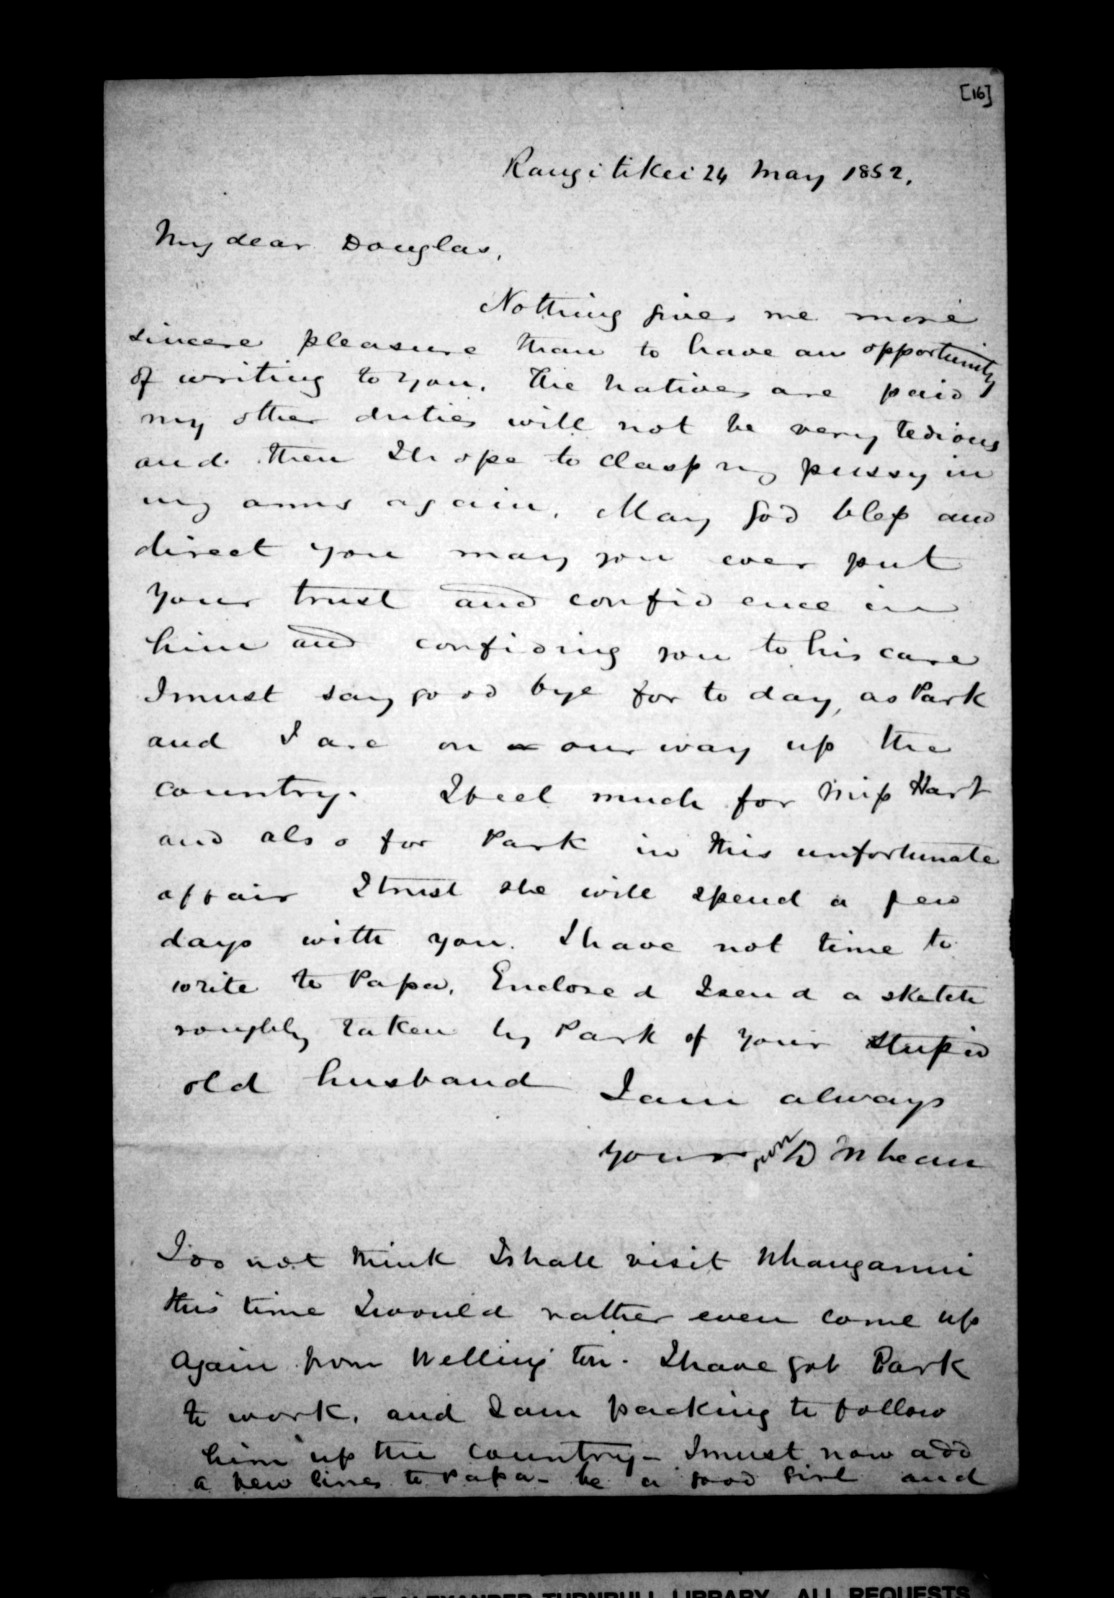 [16]
Rangitikei 24 May 1852.
My dear Douglas,
Nothing gives me more
sincere pleasure than to have an opportunity
of writing to you. The natives are paid
my other duties will not be very tedious
and then I hope to clasp my pussy in
my arms again. May God bless and
direct you may you ever put
your trust and confidence in
him and confiding you to his care
I must say good bye for to day, as Park
and I are on our way up the
country. I feel much for Miss Hart
and also for Park in this unfortunate
affair I trust she will spend a few
days with you. I have not time to
write to Papa. Enclosed I send a sketch
roughly taken by Park of your stupid
old husband I am always
yours own D McLean
I do not think I shall visit Whanganui
this time I would rather even come up
again from Wellington. I have got Park
to work, and I am packing to follow
him up the country - I must now add
a few lines to Papa - be a good girl and
ALEXANDER TURNBULL LIBRARY. ALL REQUESTS